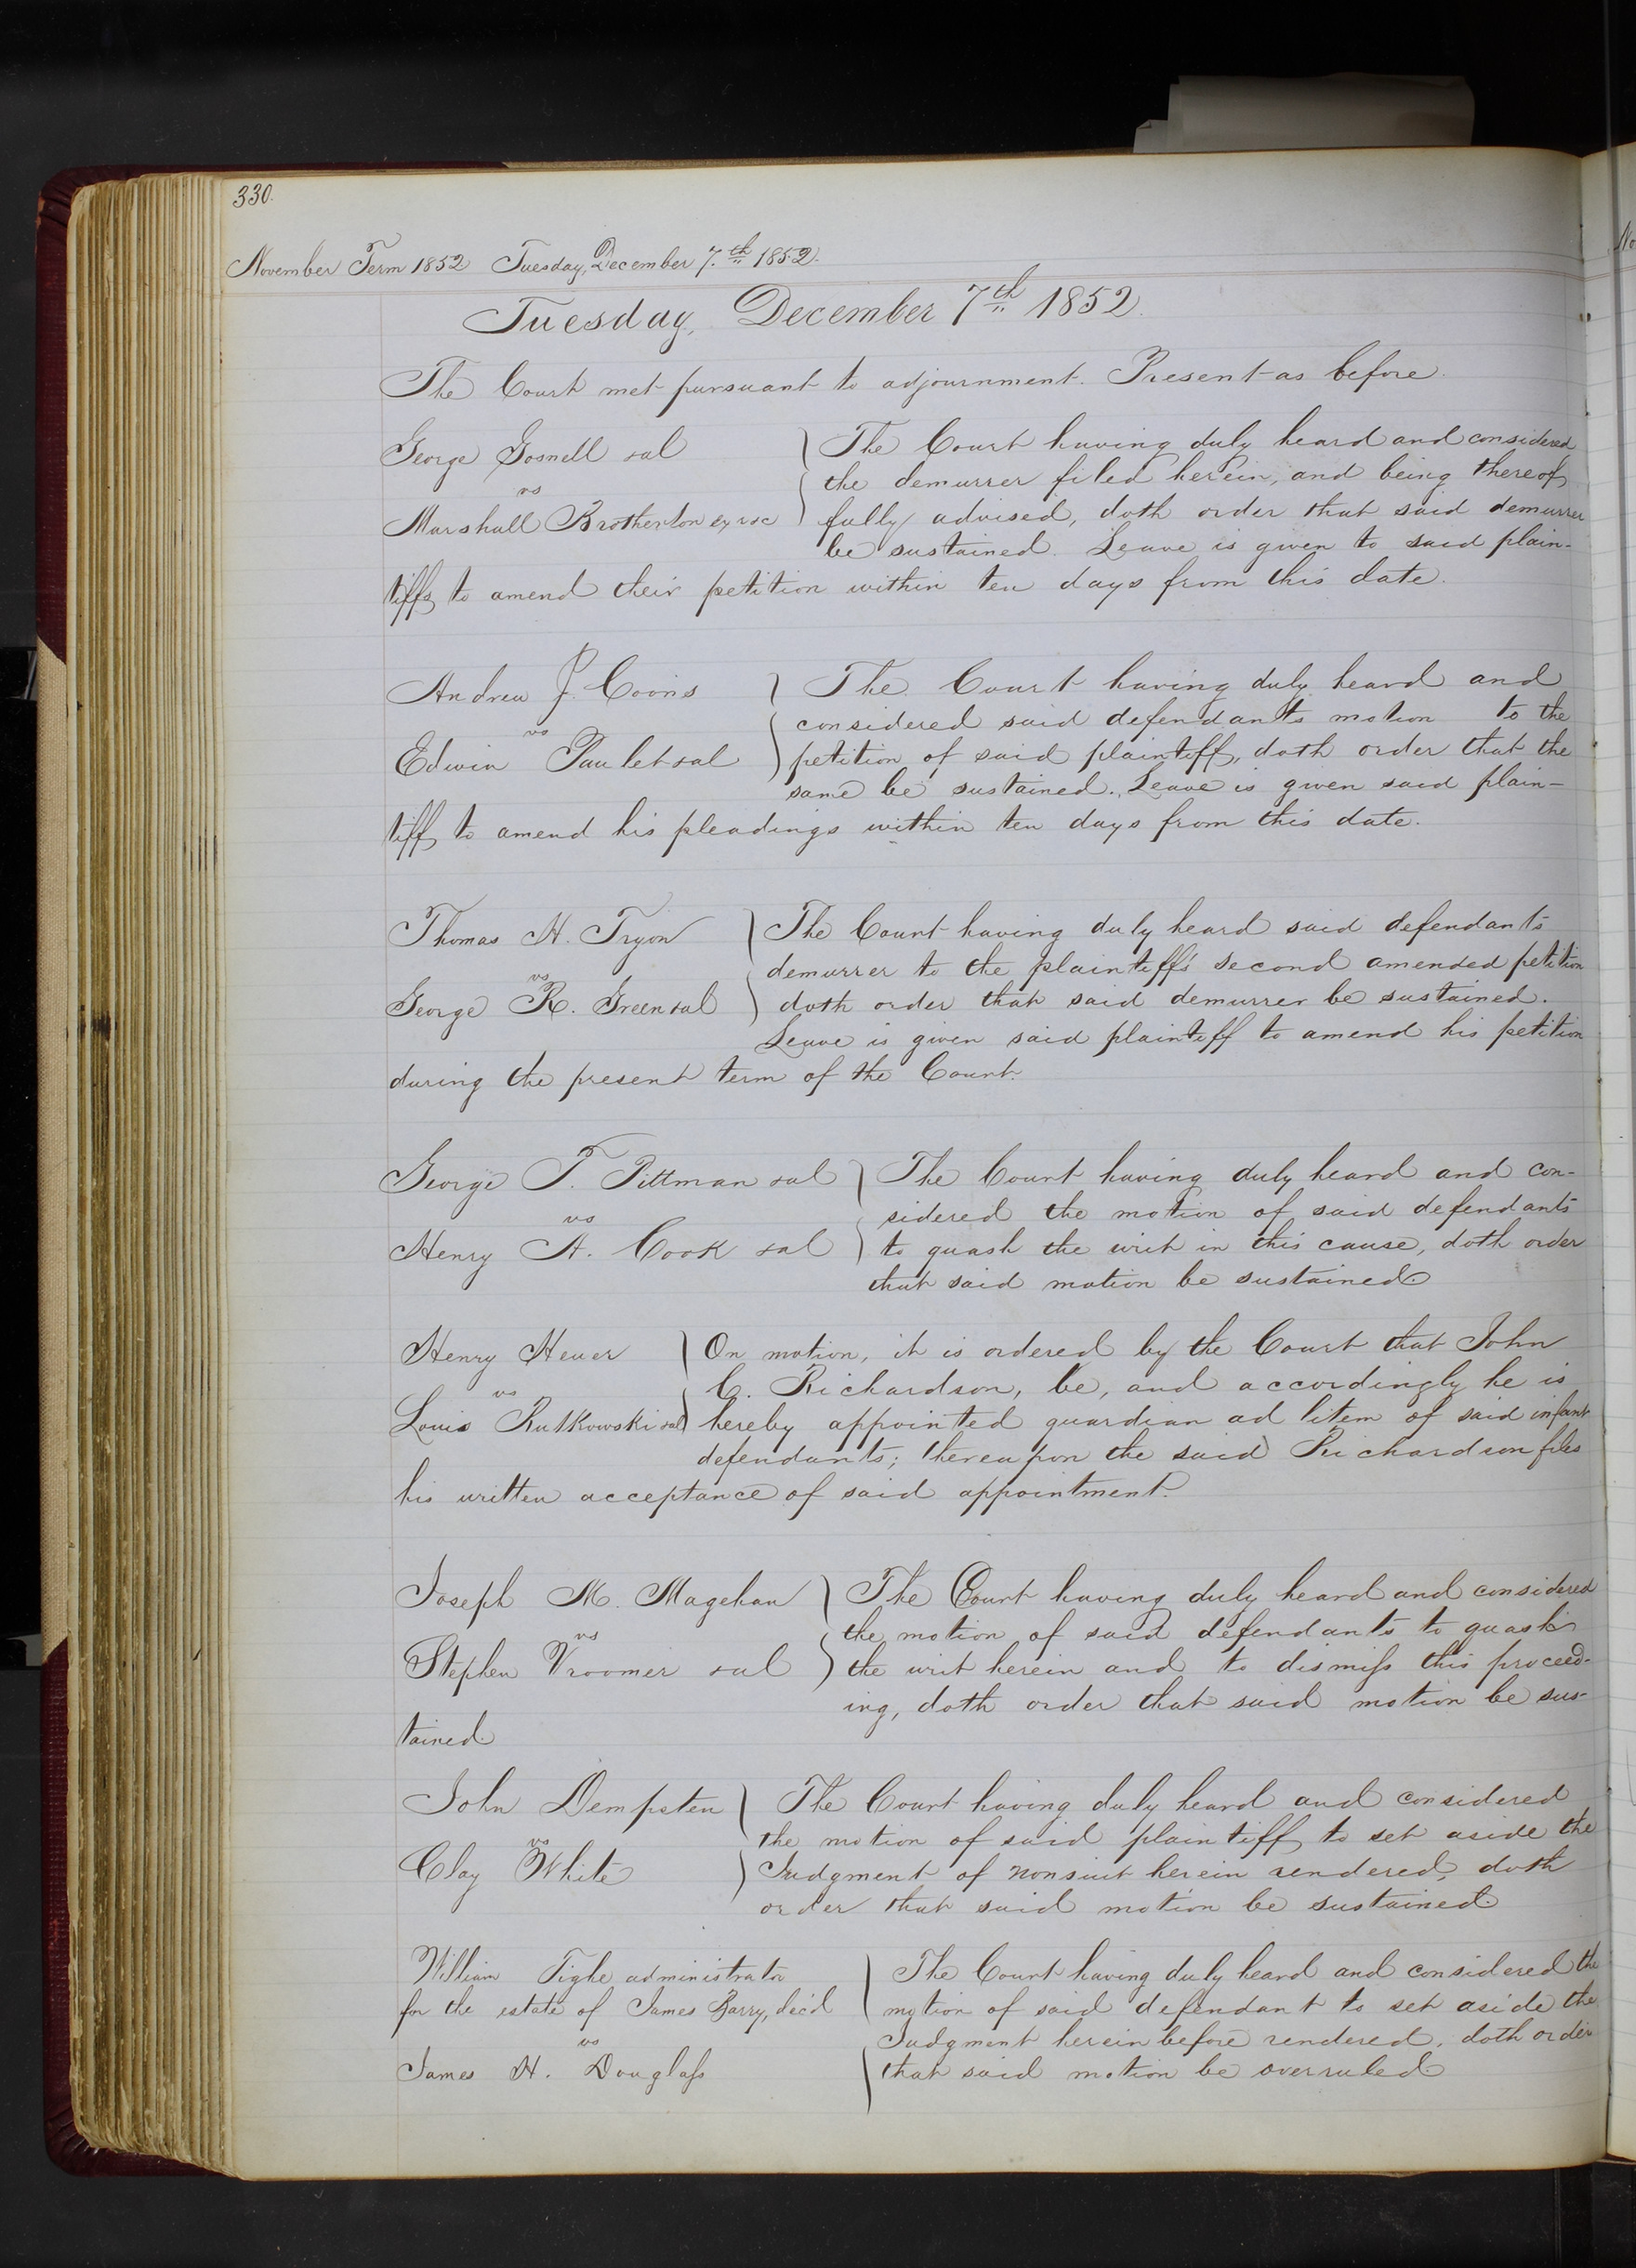 330.
November Term 1852 Tuesday, December 7th 1852.
Tuesday, December 7th 1852.
The Court met pursuant to adjournment. Present as before.
George Gosnell sal } The Court having duly heard and considered
vs the demurrer filed herein, and being thereof
Marshall Brotherton fully advised, doth order that said demurrer
be sustained. Leave is given to said plain-
tiffs to amend their petition within ten days from this date.
Andrew J. Coons } The Court having duly heard and
vs considered said defendants motion to the
Edwin Paulet sal petition of said plaintiff, doth order that the
same be sustained. Leave is given said plain-
tiff to amend his pleadings within ten days from this date.
Thomas H. Tryon } The Court having duly heard said defendants
vs demurrer to the plaintiff's second amended petition
George R. Green sal doth order that said demurrer be sustained.
Leave is given said plaintiff to amend his petition
during the present term of the Court.
George T. Pittman sal } The Court having duly heard and con-
vs sidered the motion of said defendants
Henry A. Cook sal to quash the writ in this cause, doth order
that said motion be sustained.
Henry Heuer } On motion, it is ordered by the Court that John
vs C. Richardson, be, and accordingly he is
Louis Rutkowski sal hereby appointed guardian ad litem of said infant
defendants; thereupon the said Richardson files
his written acceptance of said appointment.
Joseph M. Magehan } The Court having duly heard and considered
vs the motion of said defendants to quash
Stephen Vroomer sal the writ herein and to dismiss this proceed-
ing, doth order that said motion be sus-
tained.
John Dempsten } The Court having duly heard and considered
vs the motion of said plaintiff to set aside the
Clay White Judgment of nonsuit herein rendered, doth
order that said motion be sustained.
William Tighe administrator } The Court having duly heard and considered the
for the estate of James Barry, dec'd motion of said defendant to set aside the
vs Judgment herein before rendered, doth order
James H. Douglass that said motion be overruled